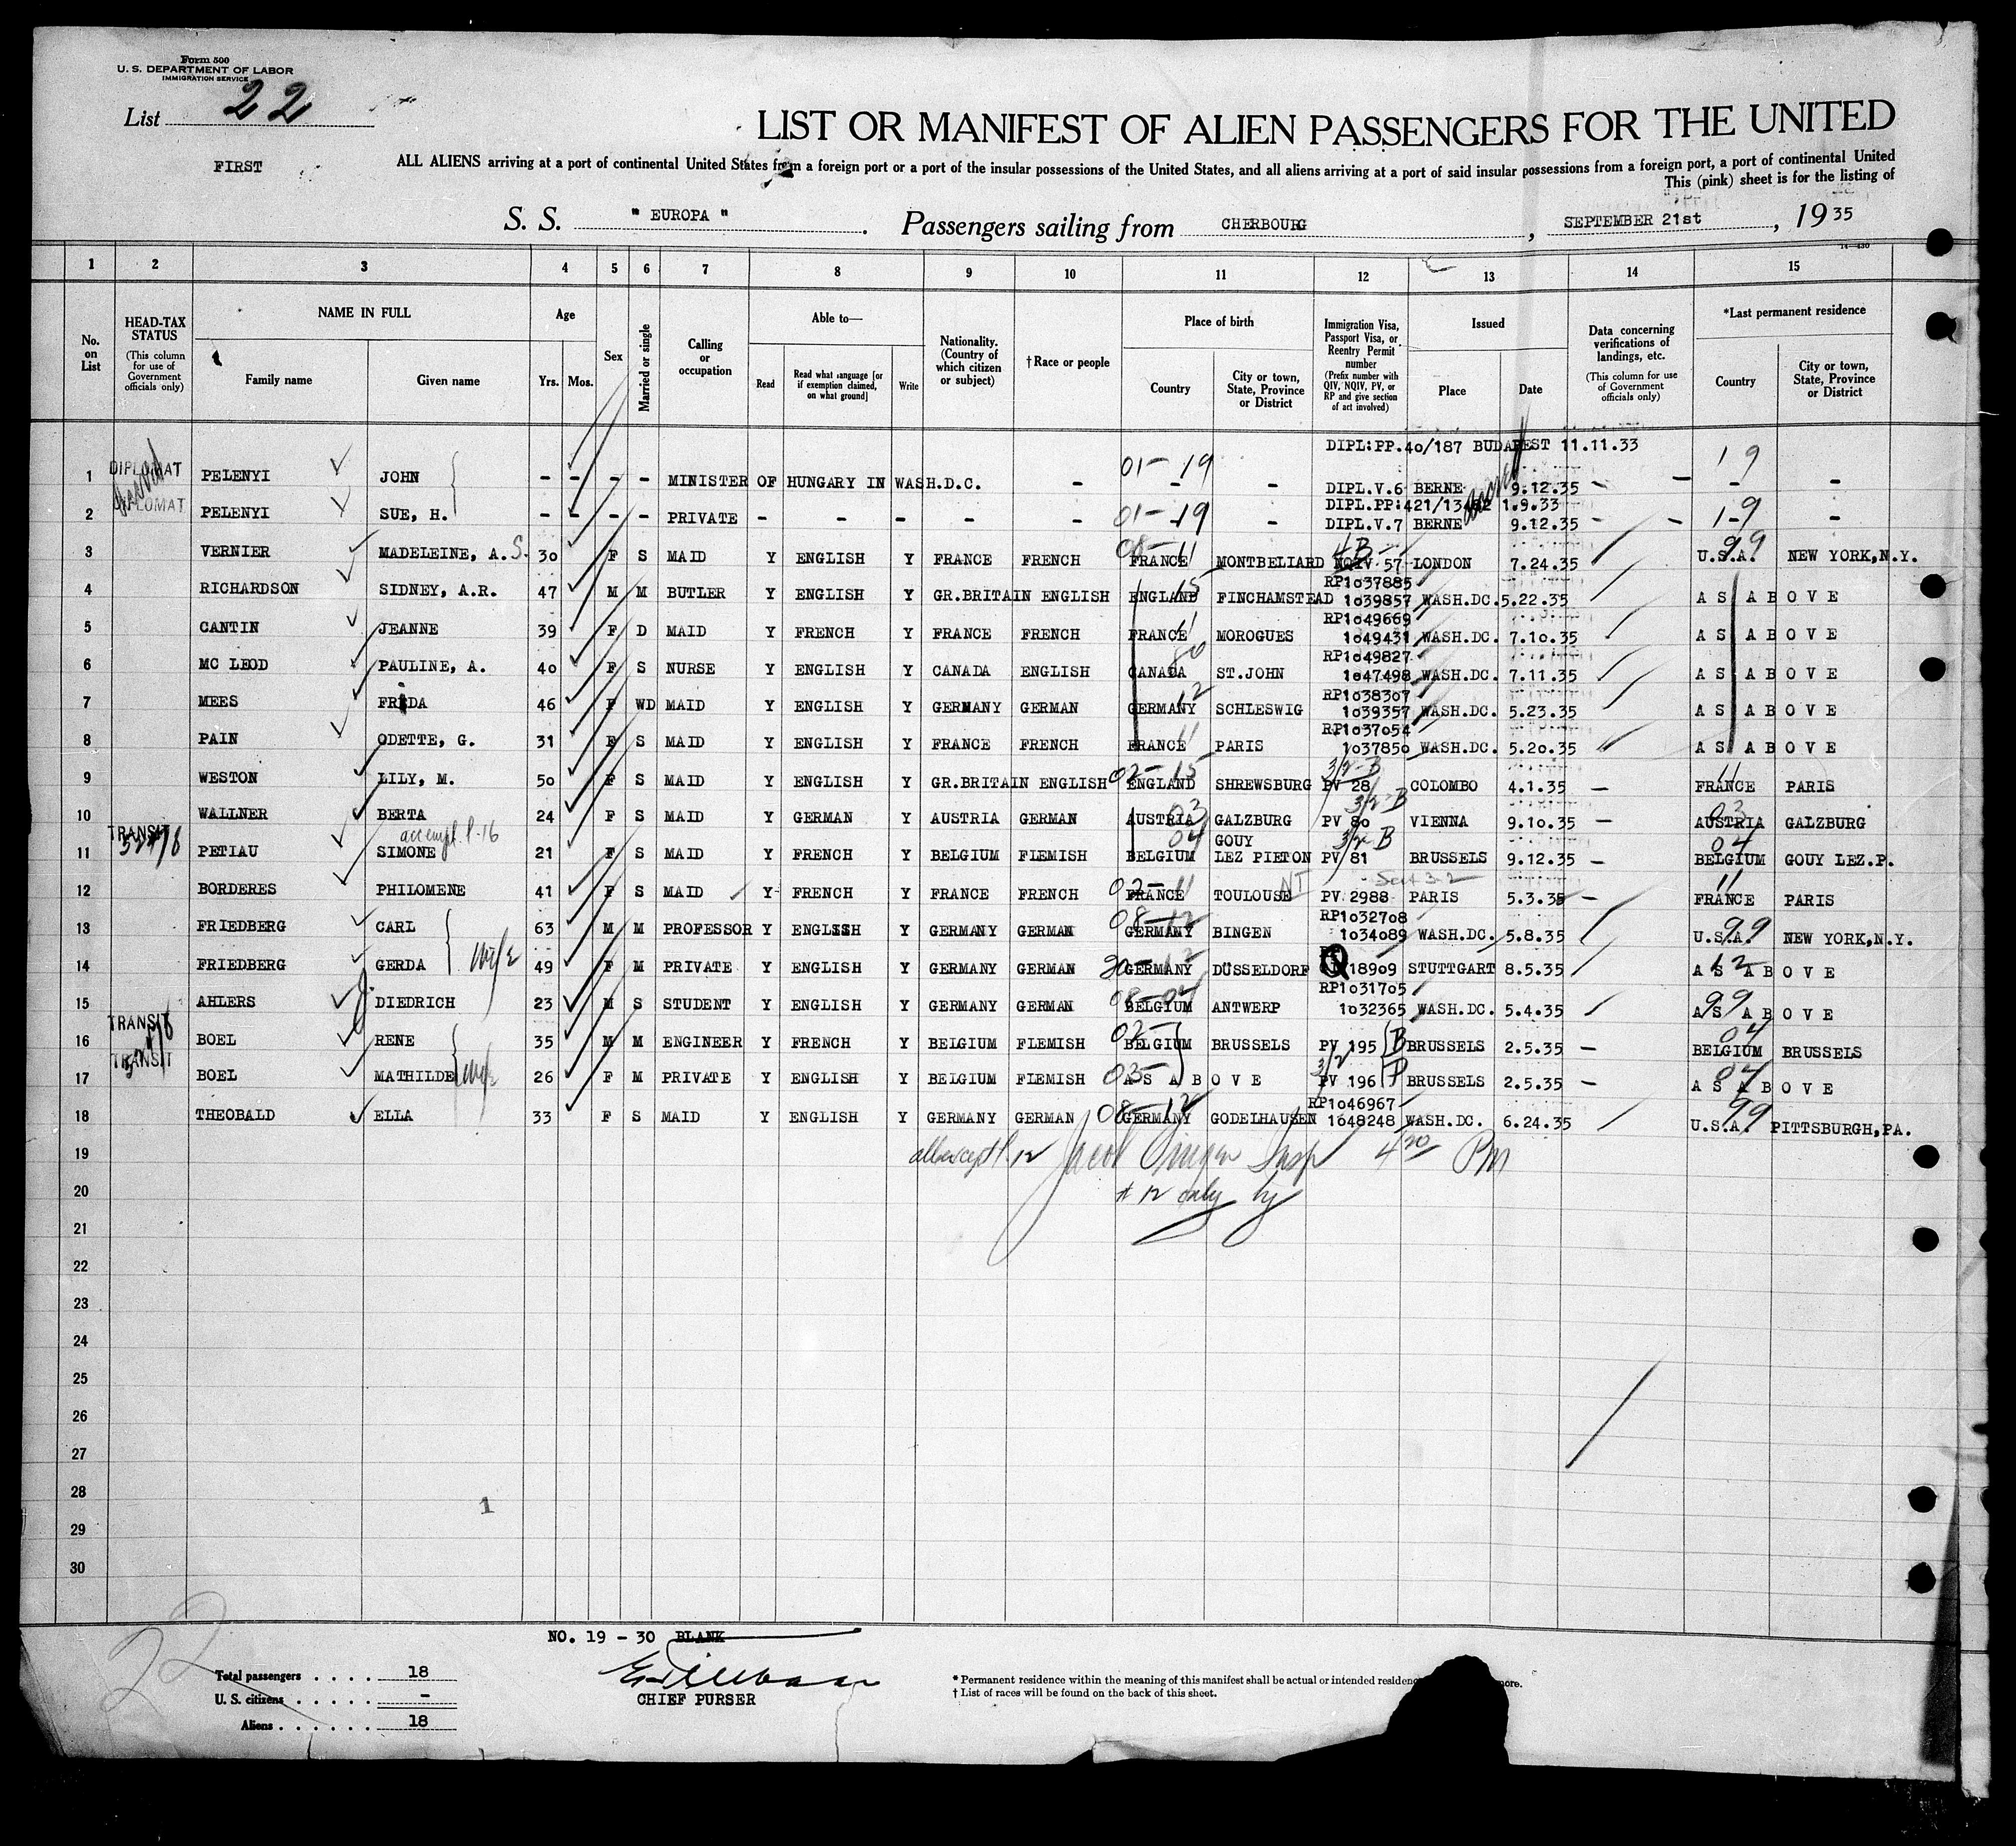 Form 500
U. S. DEPARTMENT OF LABOR
IMMIGRATION SERVICE
List 22
LIST OR MANIFEST OF ALIEN PASSENGERS FOR THE UNITED
FIRST
ALL ALIENS arriving at a port of continental United States from a foreign port or a port of the insular possessions of the United States, and all aliens arriving at a port of said insular possessions from a foreign port, a port of continental United
This (pink) sheet is for the listing of
S. S. " EUROPA " . Passengers sailing from CHERBOURG , SEPTEMBER 21st , 19 35
1 2 3 4 5 6 7 8 9 10 11 12 13 14 15
No. on List
HEAD-TAX STATUS (This column for use of Government officials only)
NAME IN FULL
Family name Given name
Age
Yrs. Mos.
Sex
Married or single
Calling or occupation
Able to—
Read Read what language [or if exemption claimed, on what ground] Write
Nationality. (Country of which citizen or subject)
†Race or people
Place of birth
Country City or town, State, Province or District
Immigration Visa, Passport Visa, or Reentry Permit number (Prefix number with QIV, NQIV, PV, or RP and give section of act involved)
Issued
Place Date
Data concerning verifications of landings, etc. (This column for use of Government officials only)
*Last permanent residence
Country City or town, State, Province or District
DIPL:PP.40/187 BUDAPEST 11.11.33
1 DIPLOMAT PELENYI JOHN - - - - MINISTER OF HUNGARY IN WASH.D.C. - 01-19 - - DIPL.V.6 BERNE 9.12.35 - 19 - -
DIPL.PP:421/13 1.9.33
2 DIPLOMAT PELENYI SUE, H. - - - - PRIVATE - - - - - 01-19 - DIPL.V.7 BERNE 9.12.35 - - 1-9 -
3 VERNIER MADELEINE, A. S. 30 F S MAID Y ENGLISH Y FRANCE FRENCH 08-11 FRANCE MONTBELIARD 4B NQIV 57 LONDON 7.24.35 99 U.S.A. NEW YORK,N.Y.
RP1037885
4 RICHARDSON SIDNEY, A.R. 47 M M BUTLER Y ENGLISH Y GR.BRITAIN ENGLISH 15 ENGLAND FINCHAMSTEAD 1039857 WASH.DC. 5.22.35 AS ABOVE
RP1049669
5 CANTIN JEANNE 39 F D MAID Y FRENCH Y FRANCE FRENCH 11 FRANCE MOROGUES 1049431 WASH.DC. 7.10.35 AS ABOVE
RP1049827
6 MC LEOD PAULINE, A. 40 F S NURSE Y ENGLISH Y CANADA ENGLISH CANADA ST.JOHN 1047498 WASH.DC. 7.11.35 AS ABOVE
RP1038307
7 MEES FRIDA 46 F WD MAID Y ENGLISH Y GERMANY GERMAN 12 GERMANY SCHLESWIG 1039357 WASH.DC. 5.23.35 AS ABOVE
RP1037054
8 PAIN ODETTE, G. 31 F S MAID Y ENGLISH Y FRANCE FRENCH 11 FRANCE PARIS 1037850 WASH.DC. 5.20.35 AS ABOVE
9 WESTON LILY, M. 50 F S MAID Y ENGLISH Y GR.BRITAIN ENGLISH 02-15 ENGLAND SHREWSBURG 3/2-B PV 28 COLOMBO 4.1.35 - 11 FRANCE PARIS
10 WALLNER BERTA 24 F S MAID Y GERMAN Y AUSTRIA GERMAN 03 AUSTRIA GALZBURG 3/2-B PV 80 VIENNA 9.10.35 - 03 AUSTRIA GALZBURG
11 TRANSIT PETIAU SIMONE 21 F S MAID Y FRENCH Y BELGIUM FLEMISH 04 BELGIUM GOUY LEZ PIETON 3/2 B PV 81 BRUSSELS 9.12.35 - 04 BELGIUM GOUY LEZ.P.
12 BORDERES PHILOMENE 41 F S MAID Y FRENCH Y FRANCE FRENCH 02-11 FRANCE TOULOUSE PV 2988 PARIS 5.3.35 - 11 FRANCE PARIS
RP1032708
13 FRIEDBERG CARL 63 M M PROFESSOR Y ENGLISH Y GERMANY GERMAN 08-12 GERMANY BINGEN 1034089 WASH.DC. 5.8.35 99 U.S.A. NEW YORK,N.Y.
14 FRIEDBERG GERDA wife 49 F M PRIVATE Y ENGLISH Y GERMANY GERMAN GERMANY DÜSSELDORF Q 18909 STUTTGART 8.5.35 12 AS ABOVE
RP1031705
15 AHLERS J. DIEDRICH 23 M S STUDENT Y ENGLISH Y GERMANY GERMAN 08-04 BELGIUM ANTWERP 1032365 WASH.DC. 5.4.35 99 AS ABOVE
16 TRANSIT BOEL RENE 35 M M ENGINEER Y FRENCH Y BELGIUM FLEMISH 02- BELGIUM BRUSSELS PV 195 B BRUSSELS 2.5.35 - 04 BELGIUM BRUSSELS
17 TRANSIT BOEL MATHILDE wife 26 F M PRIVATE Y ENGLISH Y BELGIUM FLEMISH AS ABOVE 3/2 PV 196 BRUSSELS 2.5.35 - 04 AS ABOVE
RP1046967
18 THEOBALD ELLA 33 F S MAID Y ENGLISH Y GERMANY GERMAN 08-12 GERMANY GODELHAUSEN 1648248 WASH.DC. 6.24.35 99 U.S.A. PITTSBURGH,PA.
19 all except l. 12 Jacob Insp 4 20 PM
20 # 12 only
21
22
23
24
25
26
27
28
29
30
1
22
NO. 19 - 30 BLANK
Total passengers . . . . 18
U. S. citizens . . . . . -
Aliens . . . . . . 18
CHIEF PURSER
* Permanent residence within the meaning of this manifest shall be actual or intended residence
† List of races will be found on the back of this sheet.